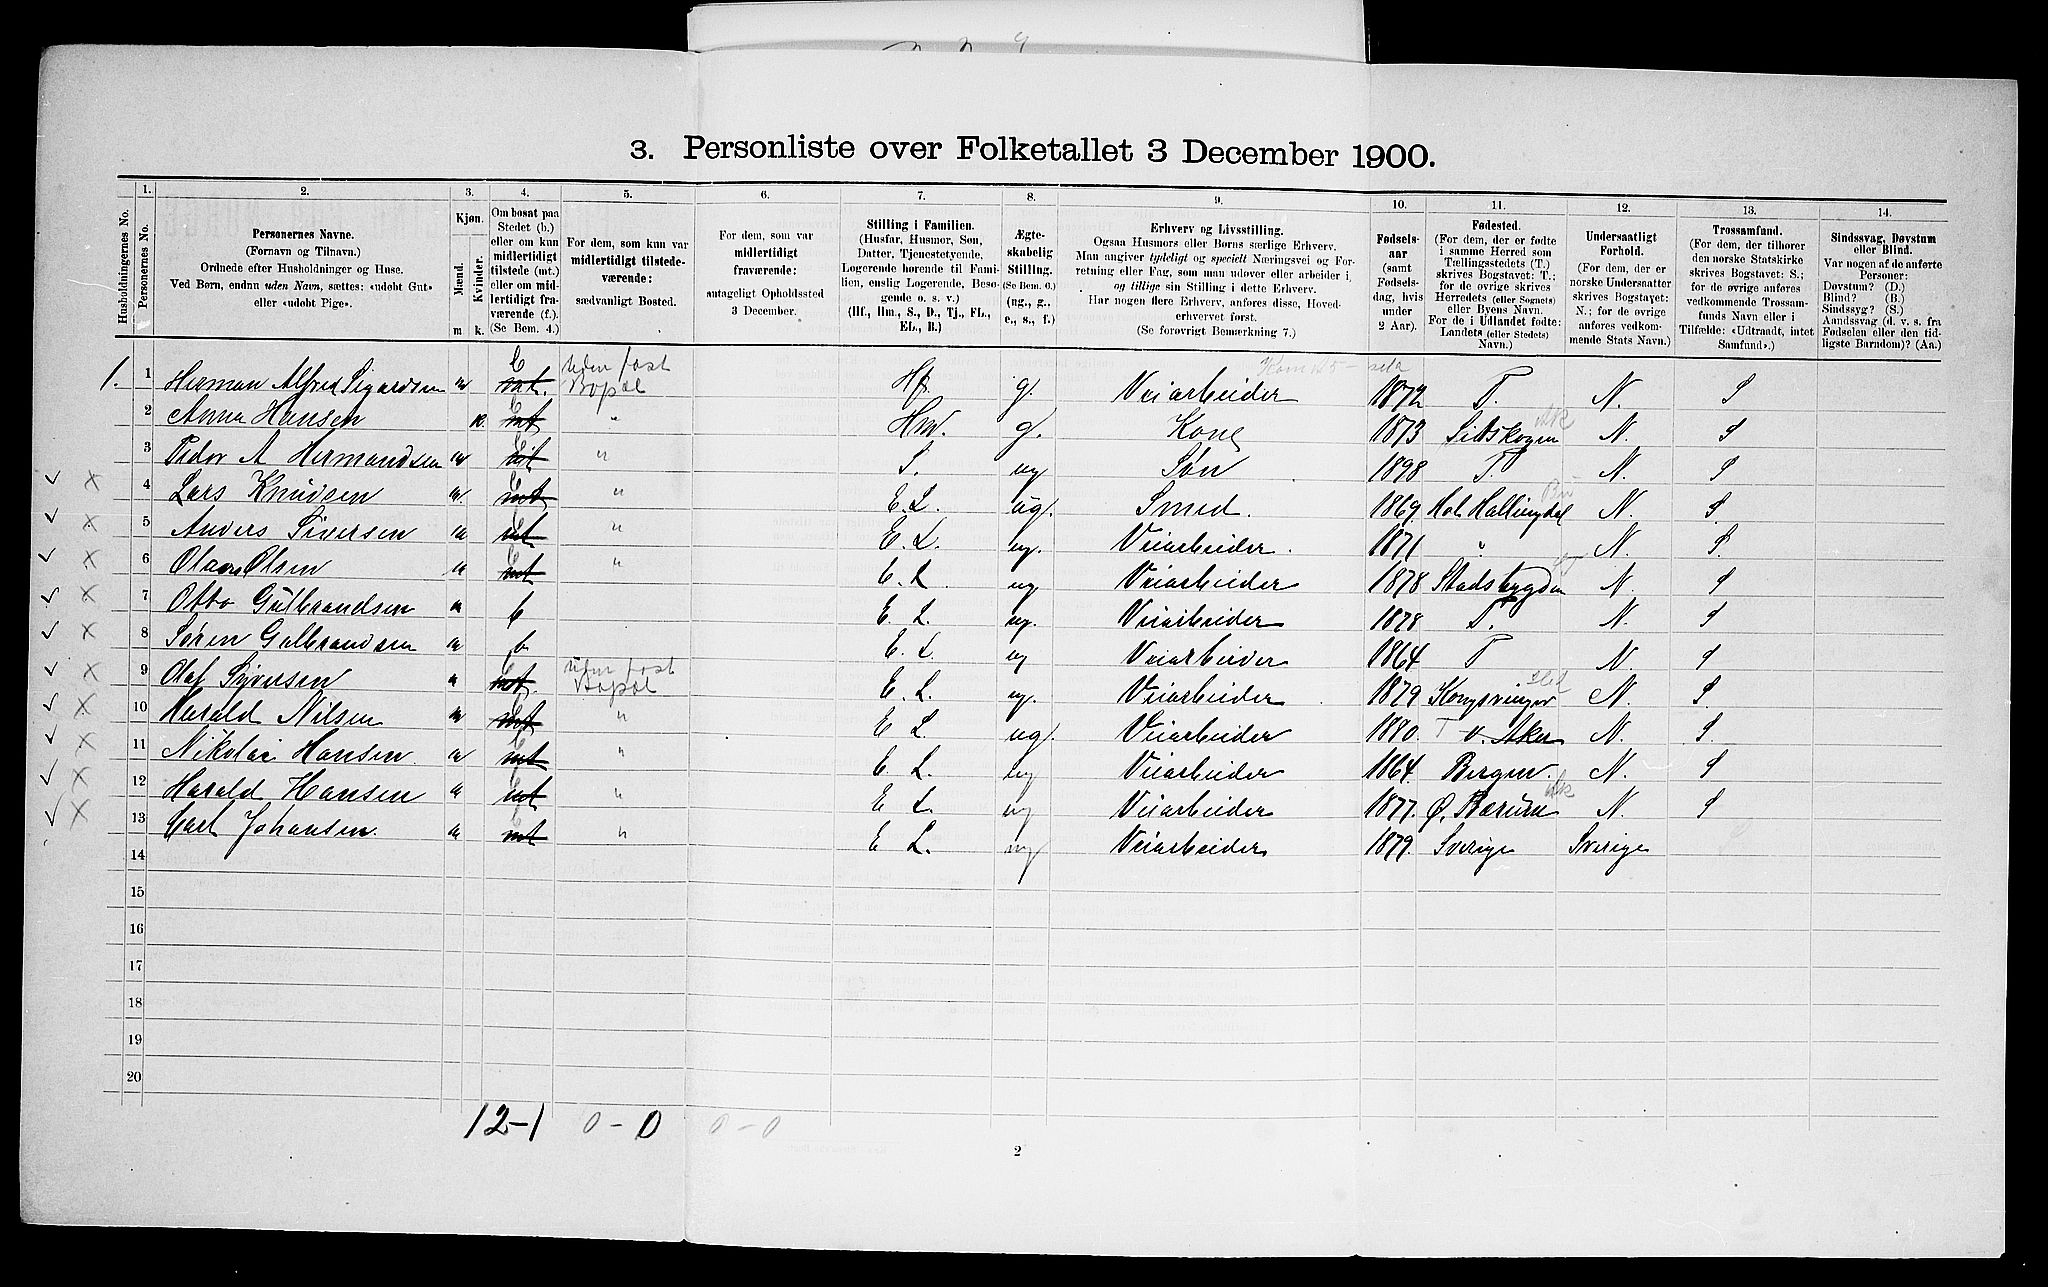 3. Personliste over Folketallet 3 December 1900.
1. 2. 3. 4. 5. 6. 7. 8. 9. 10. 11. 12. 13. 14.
Husholdningernes No.
Personernes No.
Personernes Navne.
(Fornavn og Tilnavn.)
Ordnede efter Husholdninger og Huse.
Ved Børn, endnu uden Navn, sættes: «udøbt Gut»
eller «udøbt Pige».
Kjøn.
Mænd.
Kvinder.
m k.
Om bosat paa
Stedet (b.)
eller om kun
midlertidigt
tilstede (mt.)
eller om mid-
lertidigt fra-
værende (f.).
(Se Bem. 4.)
For dem, som kun var
midlertidigt tilstede-
værende:
sædvanligt Bosted.
For dem, som var
midlertidigt
fraværende:
antageligt Opholdssted
3 December.
Stilling i Familien.
(Husfar, Husmor, Søn,
Datter, Tjenestetyende,
Logerende hørende til Fami-
lien, enslig Logerende, Besø-
gende o. s. v.)
(Hf., Hm., S., D., Tj., FL.,
EL., B.)
Ægte-
skabelig
Stilling.
(Se Bem. 6.)
(ug., g.,
e., s., f.)
Erhverv og Livsstilling.
Ogsaa Husmors eller Børns særlige Erhverv.
Man angiver tydeligt og specielt Næringsvei og For-
retning eller Fag, som man udøver eller arbeider i,
og tillige sin Stilling i dette Erhverv.
Har nogen flere Erhverv, anføres disse, Hoved-
erhvervet først.
(Se forøvrigt Bemærkning 7.)
Fødsels-
aar
(samt
Fødsels-
dag, hvis
under
2 Aar).
Fødested.
(For dem, der er fødte
i samme Herred som
Tællingsstedets (T.)
skrives Bogstavet: T.;
for de øvrige skrives
Herredets (eller Sognets)
eller Byens Navn.
For de i Udlandet fødte:
Landets (eller Stedets)
Navn.)
Undersaatligt
Forhold.
(For dem, der er
norske Undersaatter
skrives Bogstavet:
N.; for de øvrige
anføres vedkom-
mende Stats Navn.)
Trossamfund.
(For dem, der tilhører
den norske Statskirke
skrives Bogstavet: S.;
for de øvrige anføres
vedkommende Trossam-
funds Navn eller i
Tilfælde: «Udtraadt, intet
Samfund».)
Sindssvag, Døvstum
eller Blind.
Var nogen af de anførte
Personer:
Døvstum? (D.)
Blind? (B.)
Sindssyg? (S.)
Aandssvag (d. v. s. fra
Fødselen eller den tid-
ligste Barndom)? (Aa.)
1. 1 Herman Alfred Sigurdsen m b mt. uden fast Bopæl Hf g. Veiarbeider 1872 T. N. S
2 Anna Hansen k. b mt " Hm. g. Kone 1873 Sitskogen Ak N. S
3 Peder A Hermandsen m b mt " S. ug Søn 1898 T. N. S
4 Lars Knudsen m b mt " E. L. ug. Smed. 1869. Hol. Hallingdal Bu N. S
5 Anders Siversen m b mt " E. L. ug. Veiarbeider. 1871 " N. S.
6 Olaus Olsen m b mt " E. L. ug Veiarbeider 1878 Stadsbygden N. S
7 Otto Gulbrandsen m b E. L. ug. Veiarbeider 1878 T. N. S
8 Søren Gulbrandsen m b E. L ug Veiarbeider 1864 T N. S
9 Olaf Syversen m b mt. uden fast Bopæl E. L. ug. Veiarbeider 1879 Kongsvinger N. S.
10 Harald Nilsen m b mt " E L. ug. Veiarbeider 1880. T v. Aker N. S.
11 Nikolai Hansen m b mt " E. L. ug Veiarbeider 1864. Bergen. N. S
12 Harald Hansen m b mt " E L. ug Veiarbeider 1877. Ø. Bærum Ak N. S
13 Carl Johansen. m b mt " E L. ug Veiarbeider 1879. Sverige Sverige
14
15
16
17
18
19
20
12-1 0-0 0-0
2